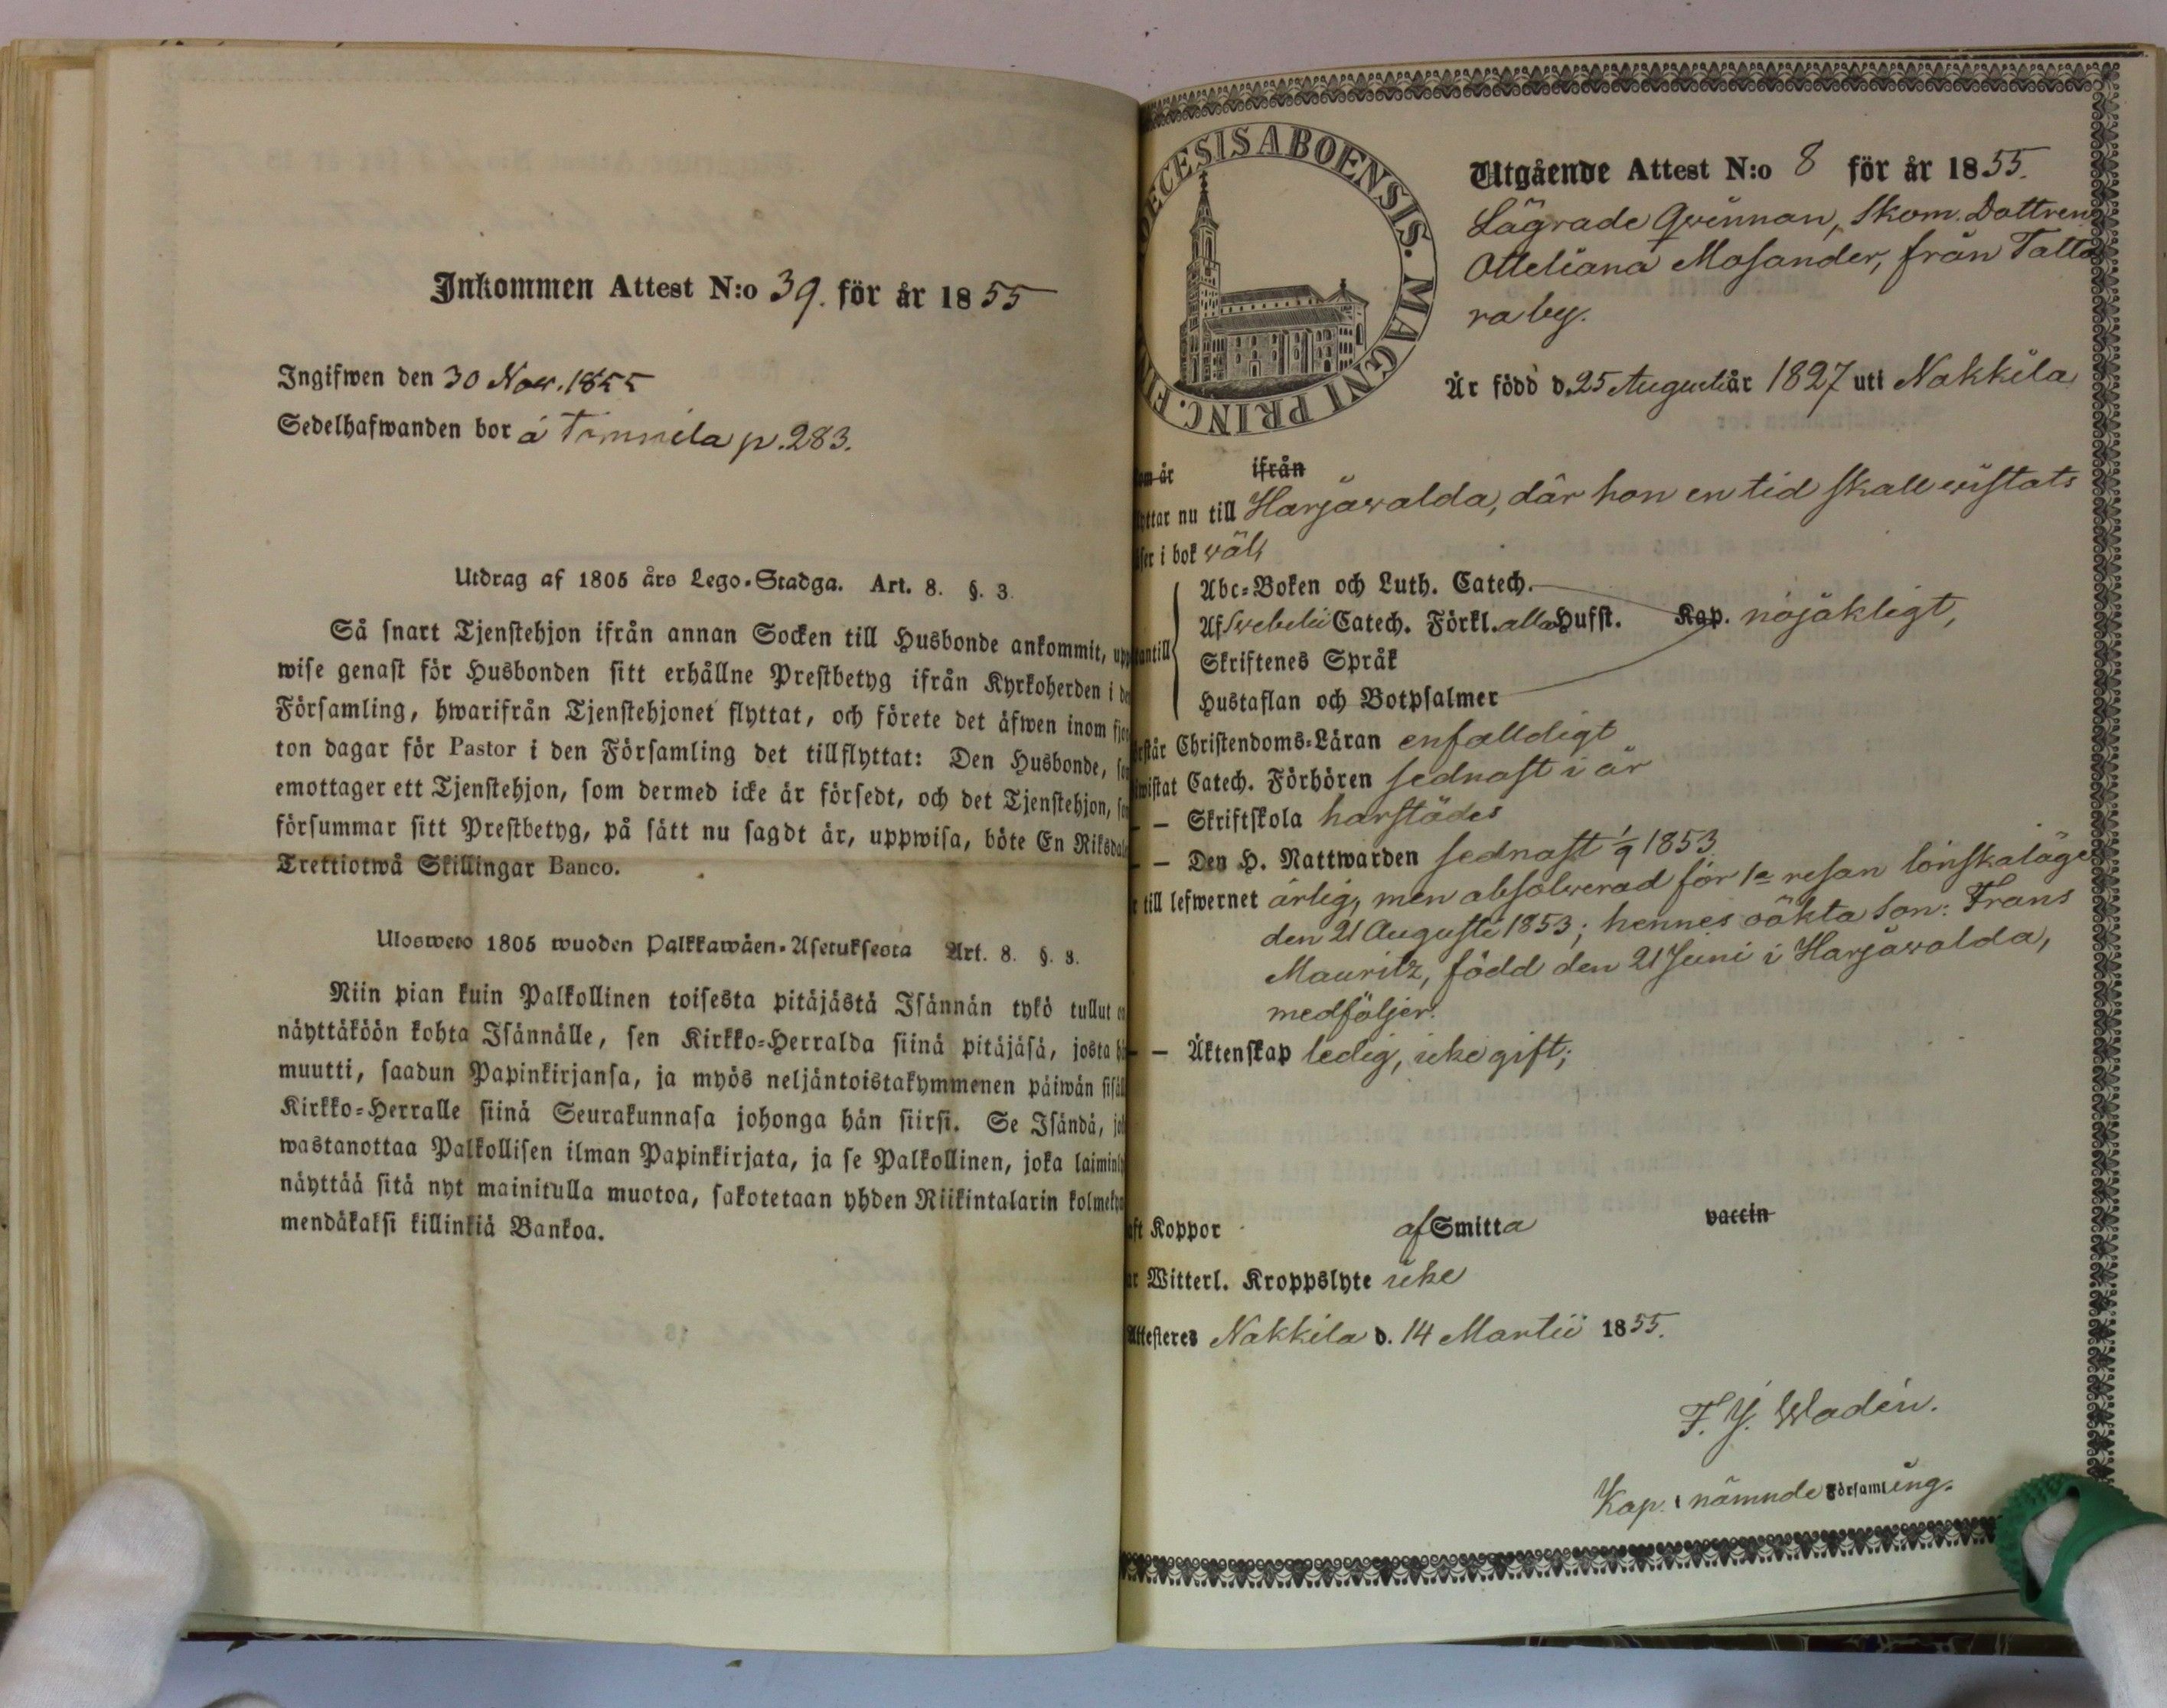 Inkommen Attest N:o 39. för år 1855
Ingifwen den 30 Nov. 1855
Sedelhafwanden bor å Tommila p. 283.
Utdrag af 1805 års Lego-Stadga. Art. 8. §. 3.
Så snart Tjenstehjon ifrån annan Socken till Husbonde ankommit, upp
wise genast för Husbonden sitt erhållne Prestbetyg ifrån Kyrkoherden i de
Församling, hwarifrån Tjenstehjonet flyttat, och förete det äfwen inom fjor
ton dagar för Pastor i den Församling det tillflyttat: Den Husbonde, so
emottager ett Tjenstehjon, som dermed icke är försedt, och det Tjenstehjon, so
försummar sitt Prestbetyg, på sätt nu sagdt är, uppwisa, böte En Riksdale
Trettiotwå Skillingar Banco.
Uloswеto 1805 wuoden Palkkawäen-Asetuksesta Art. 8. §. 3.
Niin pian kuin Palkollinen toisesta pitäjästä Isännän tykö tullut o
näyttäköön kohta Isännälle, sen Kirkko-Herralda siinä pitäjäsä, josta hä
muutti, saadun Papinkirjansa, ja myös neljäntoistakymmenen päiwän sisäl
Kirkko-Herralle siinä Seurakunnasa johonga hän siirsi. Se Isändä, jok
wastanottaa Palkollisen ilman Papinkirjata, ja se Palkollinen, joka laiminly
näyttää sitä nyt mainitulla muotoa, sakotetaan yhden Riikintalarin kolmeky
mendäkaksi killinkiä Bankoa.
ECESIS ABOENSIS. MAGNI PRINC. FIN
Utgående Attest N:o 8 för år 1855.
Lägrade Qvinnan, Skom. Dottren
Otteliana Mosander, från Tatta
ra by.
Är född d. 25 Augusti år 1827 uti Nakkila
om är ifrån
yttar nu till Harjawalda, där hon en tid skall wistats
äser i bok wäl,
antill
Abc-Boken och Luth. Catech.
Af Swebelii Catech. Förkl. alla Hufst. Kap. nöjaktigt,
Skriftenes Språk
Hustaflan och Botpsalmer
rstår Christendoms-Läran enfalldigt
wistat Catech. Förhören sednast i år
— — Skriftskola härstädes
— — Den H. Nattwarden sednast 1/9 1853
r till lefwernet ärlig, men absolverad för 1a resan lönskaläge
den 21 Augusti 1853; hennes oäkta son: Frans
Mauritz, född den 21 Juni i Harjawalda,
medföljer.
— — Äktenskap ledig, icke gift;
aft Koppor af Smitta vaccin
ar Witterl. Kroppslyte icke
Attesteres Nakkila d. 14 Martii 1855.
F. Y. Wadén.
Kap. i nämnde Församling.